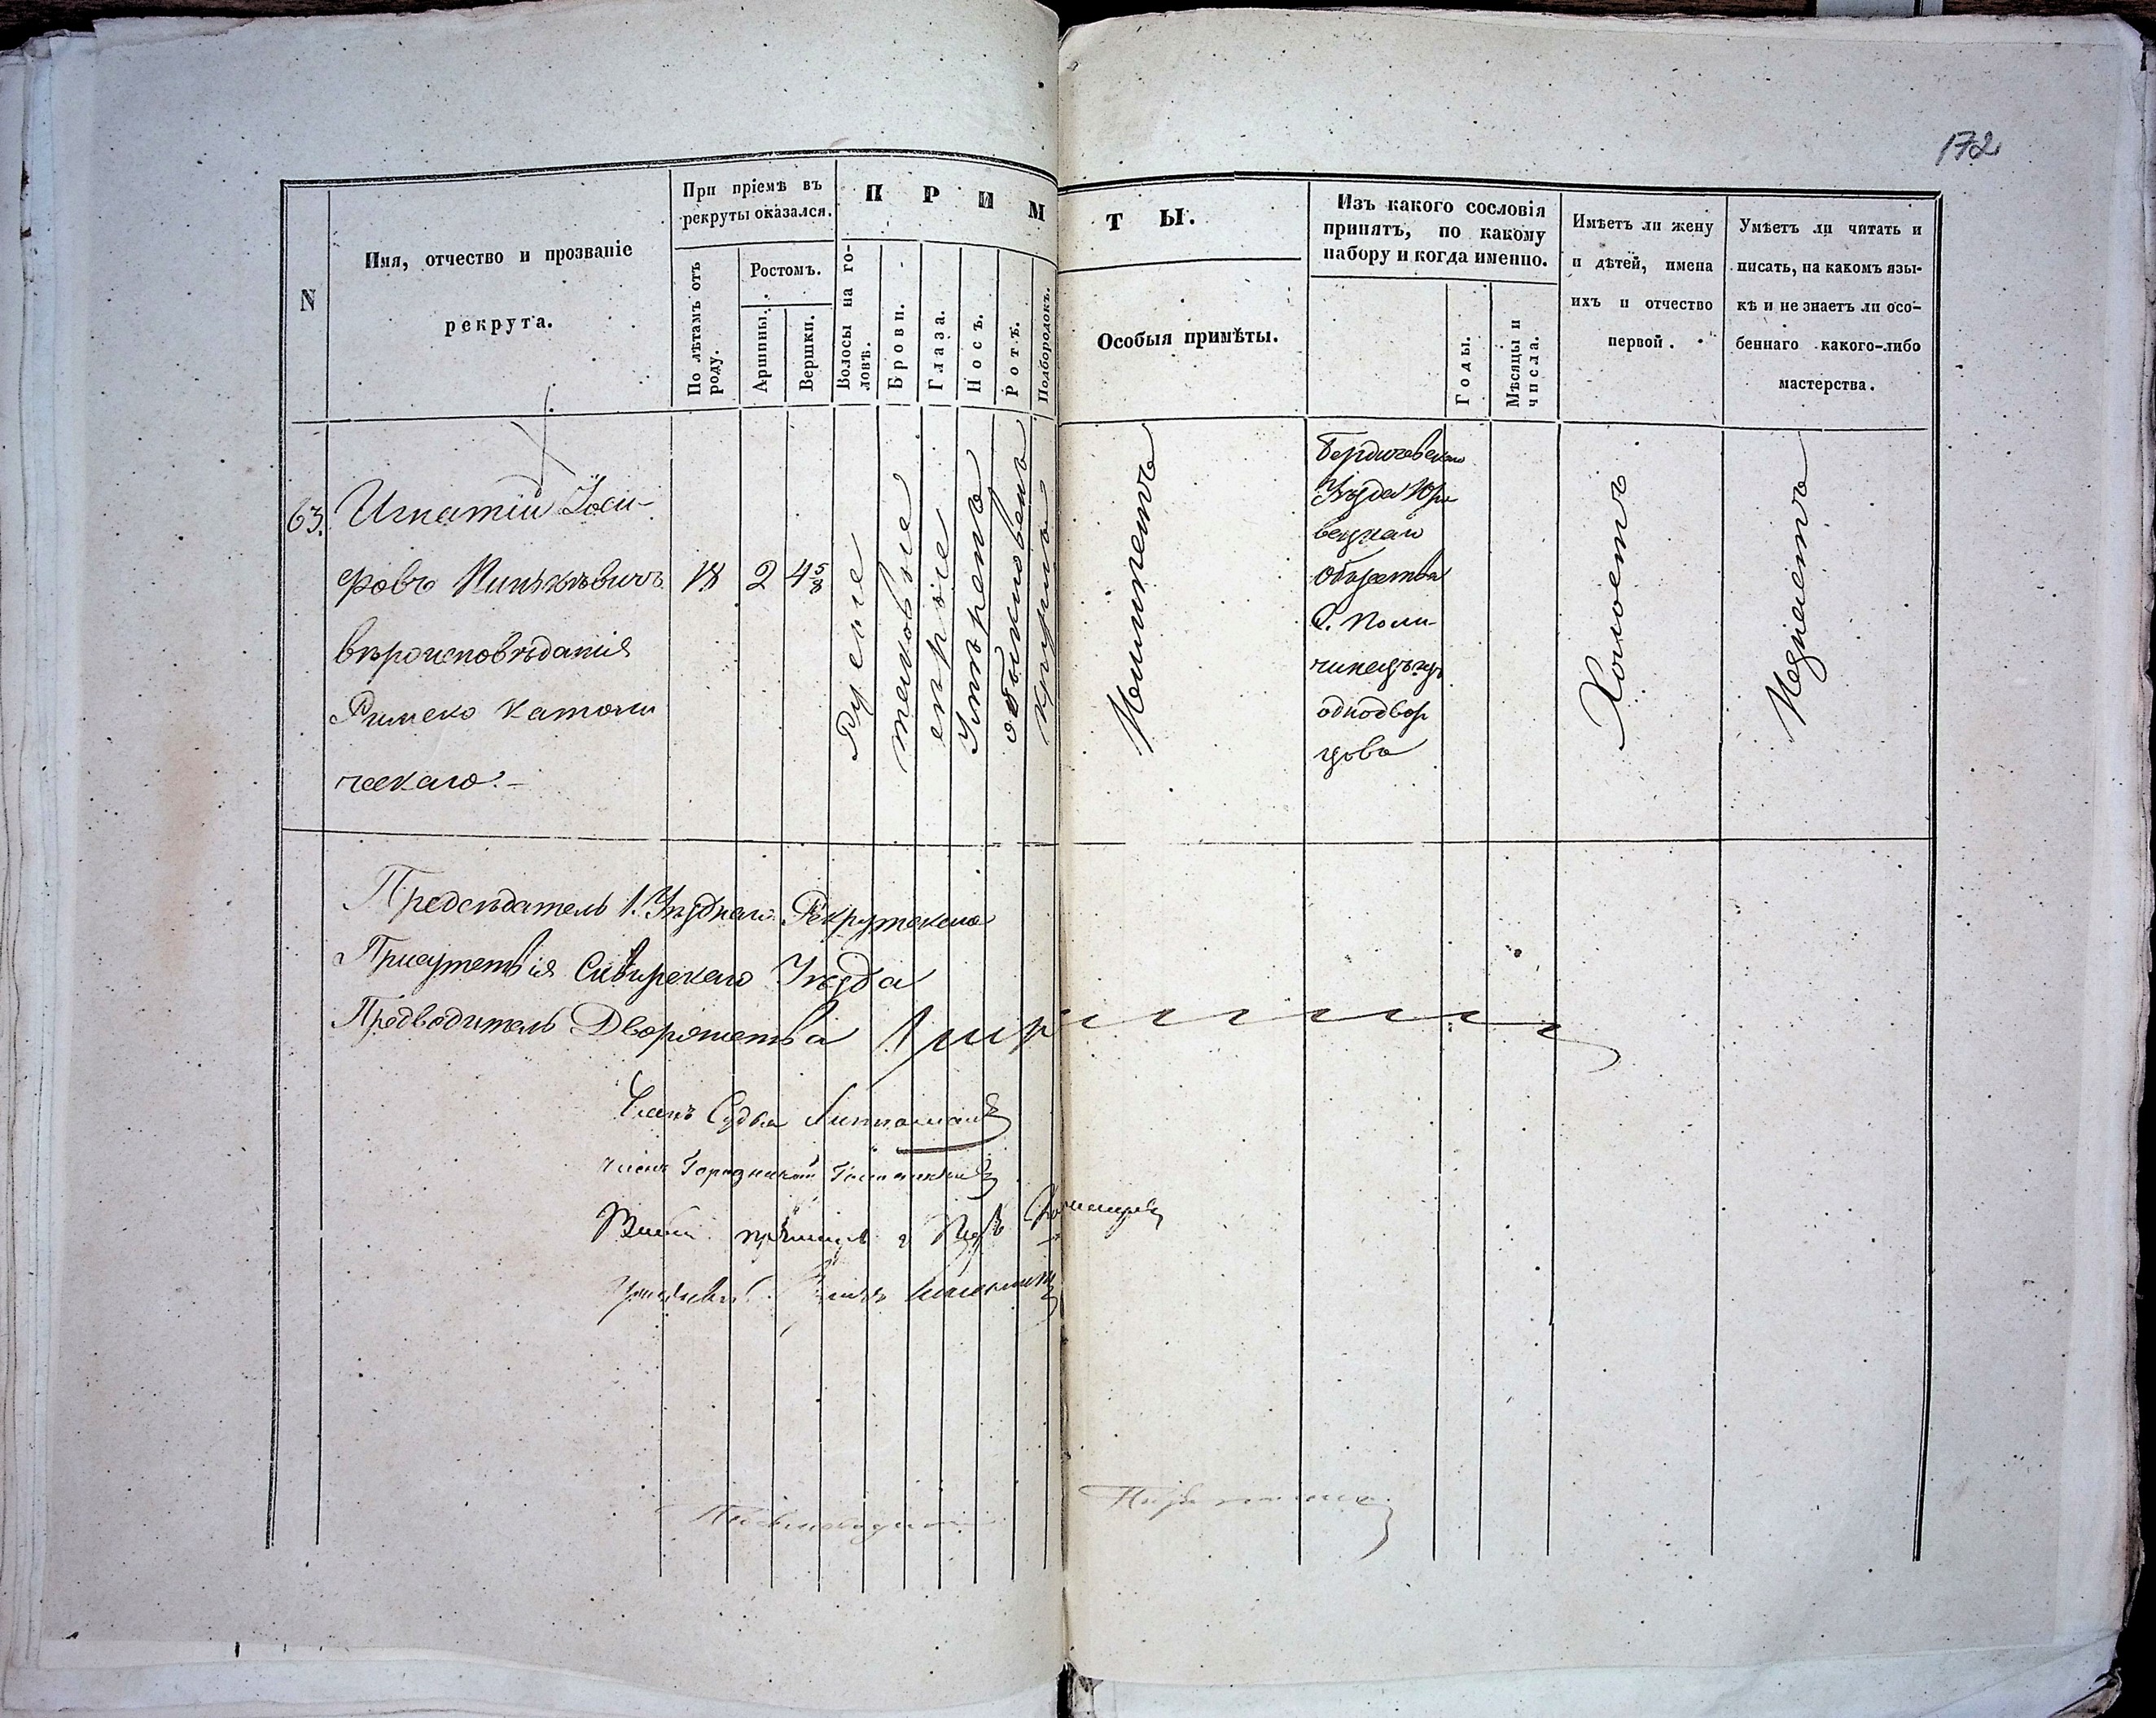 172
N
Имя, отчество и прозваніе
рекрута.
При пріемѣ въ
рекруты оказался.
По лѣтамъ отъ
роду.
Ростомъ.
Аршины.
Вершки.
П Р И М
Волосы на го-
ловѣ.
Брови.
Глаза.
Носъ.
Ротъ.
Подбородокъ.
Т Ы.
Особыя примѣты.
Изъ какого сословія
принятъ, по какому
набору и когда именно.
Годы.
Мѣсяцы и
числа.
Имѣетъ ли жену
и дѣтей, имена
ихъ и отчество
первой.
Умѣетъ ли читать и
писать, на какомъ язы-
кѣ и не знаетъ ли осо-
беннаго какого-либо
мастерства.
63.
Игнатій Іоси-
фовъ
вѣроисповѣданія
Римско Католи
ческаго.-
18
2
4 5/8
Русые
таковые
сѣрые
Умѣренъ
обыкновенъ
круглъ
Неимѣетъ
Бердичевскаго
Уѣзда
Общества
С.
однодвор
цовъ
Холостъ
Незнаетъ
Предсѣдатель 1. Уѣзднаго Рекрутскаго
Присутствія Сквирскаго Уѣзда
Предводитель Дворянства
Членъ Судья
Членъ Городничій